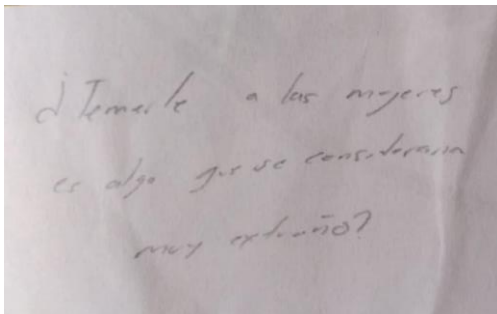 ¿Temerle a las mujeres
es algo que se consideraria
muy extraño?